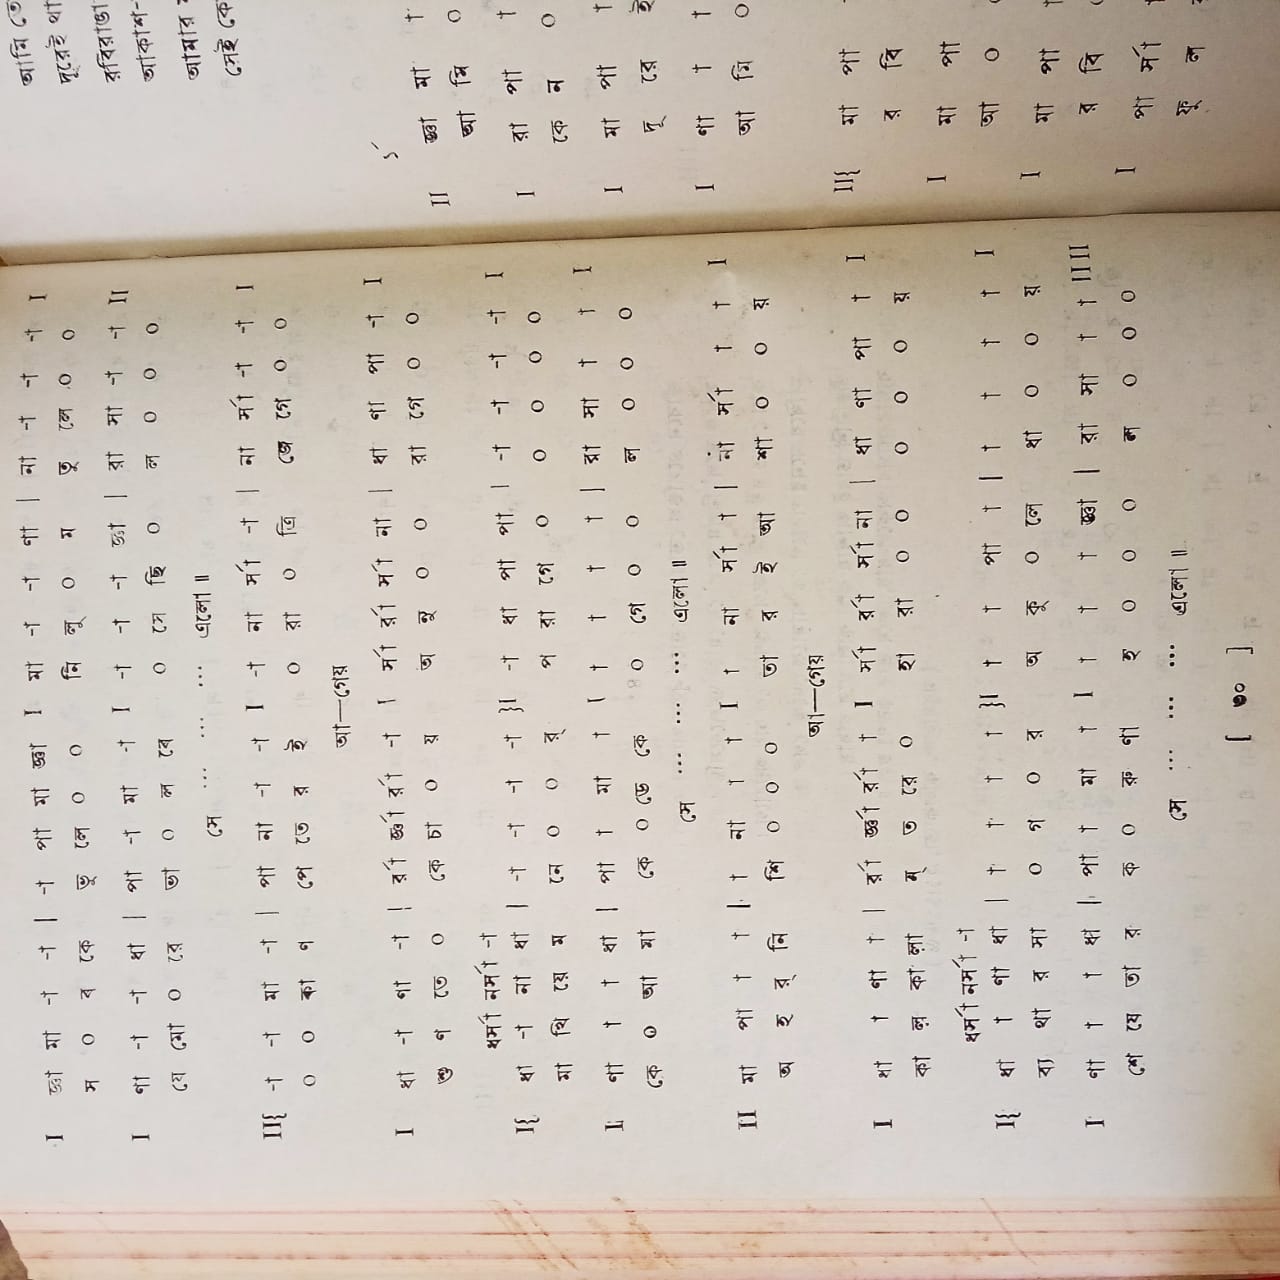 I জ্ঞা মা -া -া | -া পা মা জ্ঞা I মা -া -া ণা | না -া -া -া I
ম ০ ব কে ভু লে ০ ০ নি লূ ০ ম তু লে ০ ০
I ণা -া -া ধা | পা -া মা -া I -া -া -া জ্ঞা | রা মা -া -া II
যে মো ০ রে ভা ০ ল বে ০ সে ছি ০ ল ০ ০ ০
সে ... ... ... এলো ॥
II{ -া -া মা -া | পা না -া -া I -া না র্সা -া | না র্সা -া -া I
০ ০ কা ণ পে তে র ই ০ রা ০ ত্রি জে গে ০ ০
আ—গেয়
I ধা -া ণা -া | র্রা র্জ্ঞা র্রা -া I র্সা র্রা র্সা না | ধা ণা পা -া I
শু ণ তে ০ কে চা ০ য় অ নু ০ ০ রা গে ০ ০
ধর্সা নর্সা -া
I{ ধা -া না ধা | -া -া -া -া }I -া ধা পা পা | -া -া -া -া I
মা থি য়ে ম নে ০ ০ র্ প রা গে ০ ০ ০ ০ ০
I ণা া া ধা | পা া মা া I া া া া | রা সা া া I
কে ০ আ মা কে ০ ডে কে ০ গে ০ ০ ল ০ ০ ০
সে ... ... ... এলো ॥
II মা পা া া | া না া া I া না র্সা া | র্না র্সা া া I
অ হ র্ নি শি ০ ০ ০ তা র ই আ শা ০ ০ য়
আ—গেয়
I ধা া ণা া | র্রা র্জ্ঞা র্রা া I র্সা র্রা র্সা না | ধা ণা পা া I
কা ল্ কা লা ন্ ত রে ০ হা রা ০ ০ ০ ০ ০ য়
ধর্সা নর্সা -া
I{ ধা া ণা ধা | া া া া }I া া পা া | া া া া I
ব্য থা র সা ০ গ ০ র অ কু ০ লে ধা ০ ০ য়
I ণা া া ধা | পা া মা া I া া া জ্ঞা | রা সা া া II II
শে যে তা র ক ০ রু ণা হ ০ ০ ০ ল ০ ০ ০
সে ... ... ... এলো ॥
[ ৩০ ]
আমি
দূরেই
আকাশ-
আমার
সেই
II জ্ঞা মা া
আ মি ০
I রা পা া
কে ন ০
I মা পা া
দূ রে ই
I ণা া া
আ মি ০
II{ মা পা
র বি
I মা পা
আ ০
I মা পা
র বি
I পা র্সা
ফু ল